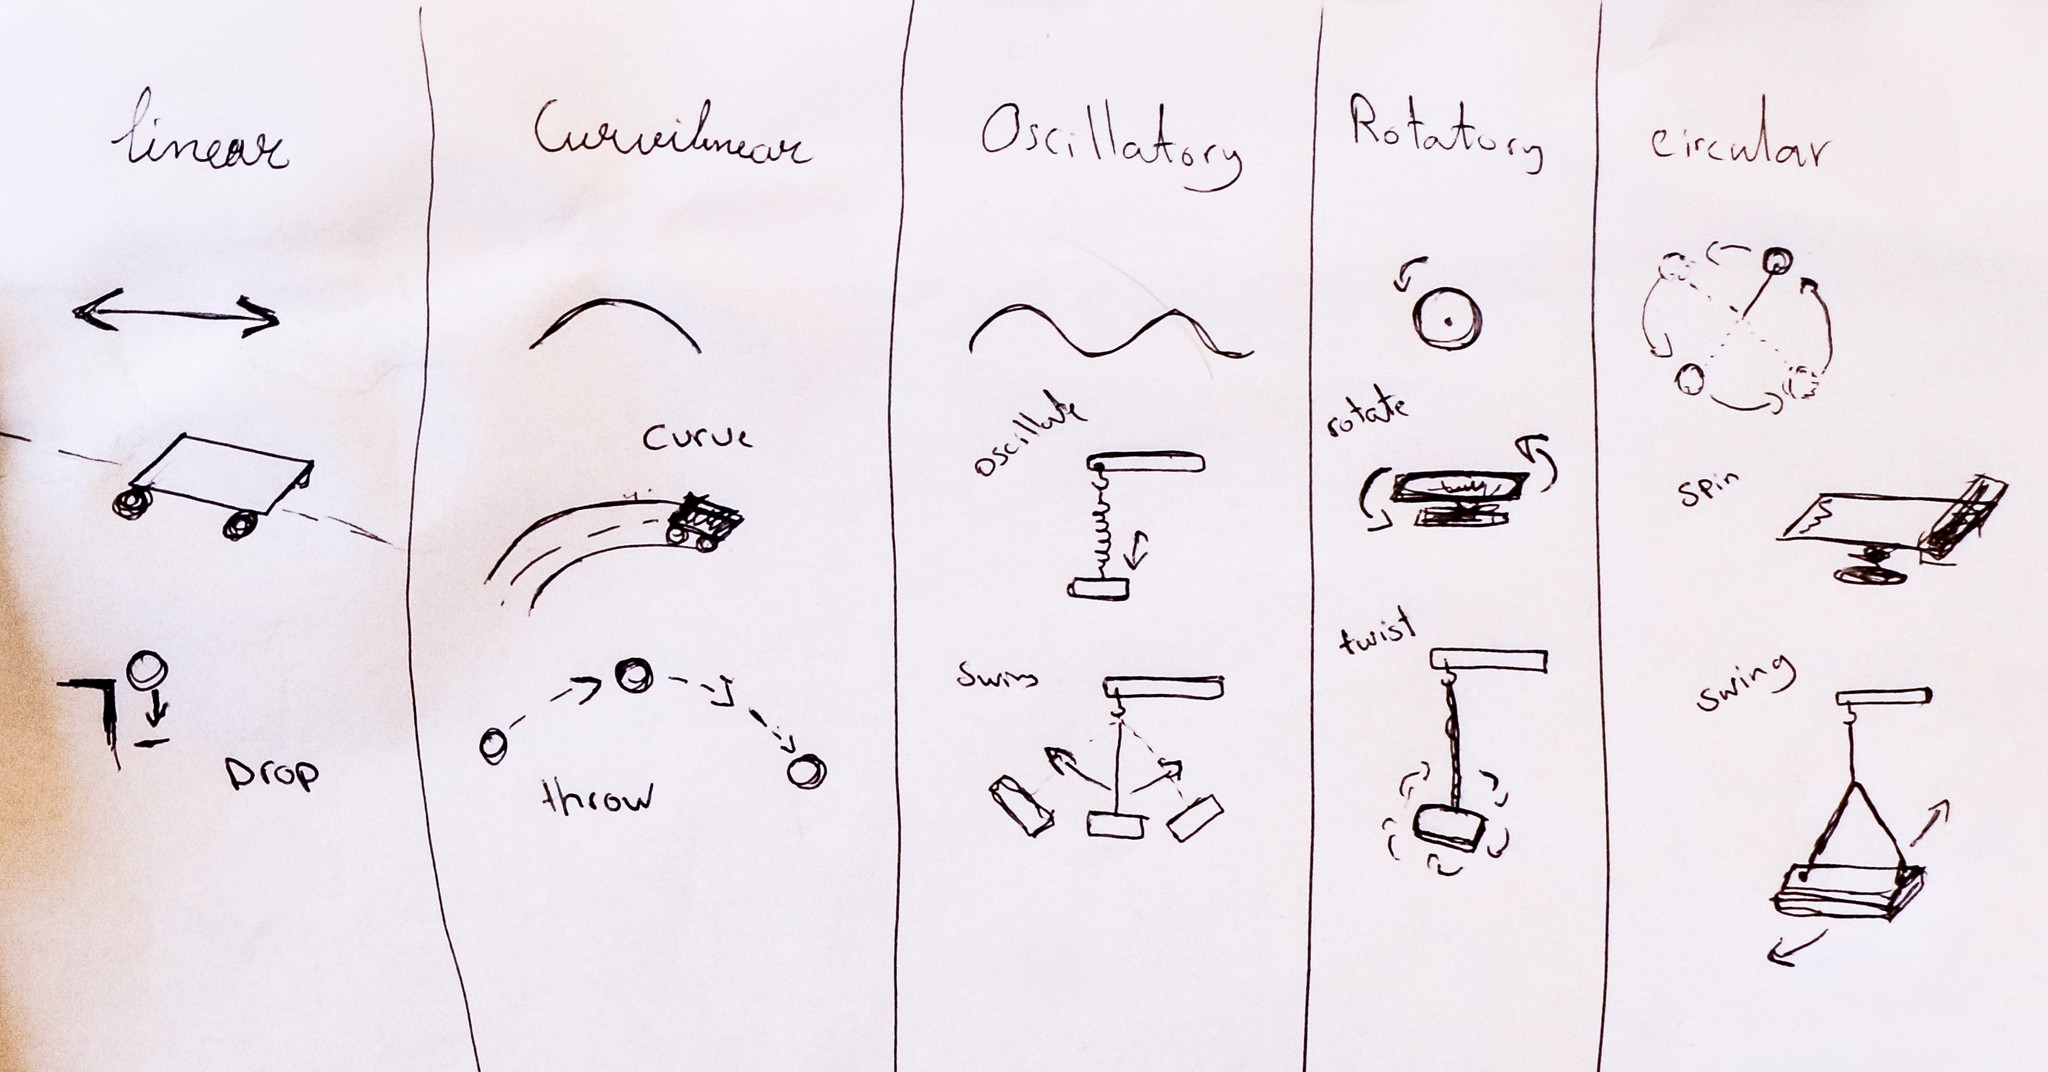 linear
Curvilinear
Oscillatory
Rotatory
circular
curve
Oscillate
rotate
spin
Drop
throw
Swing
twist
swing